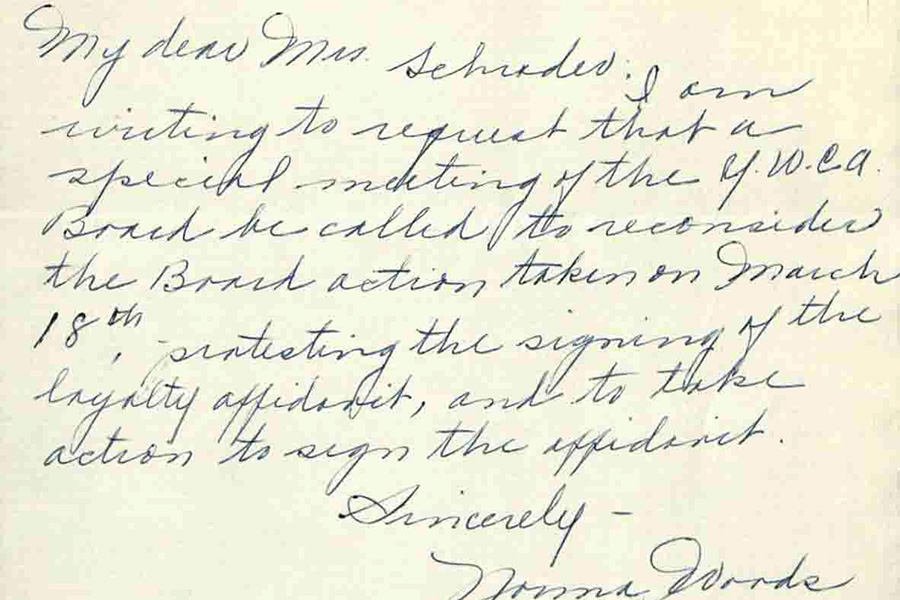 My dear Mrs. Schrader: I am
writing to request that a
special meeting of the Y.W.C.A.
Board be called to reconsider
the Board action taken on March
18th, protesting the signing of the
loyalty affidavit, and to take
action to sign the affidavit.
Sincerely -
Norma Woods